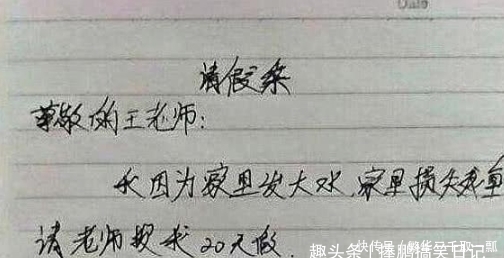 Date
请假条
尊敬的王老师:
我因为家里发大水,家里损失惨重
请老师批我20天假.
趣头条/捶鹏搞笑日记